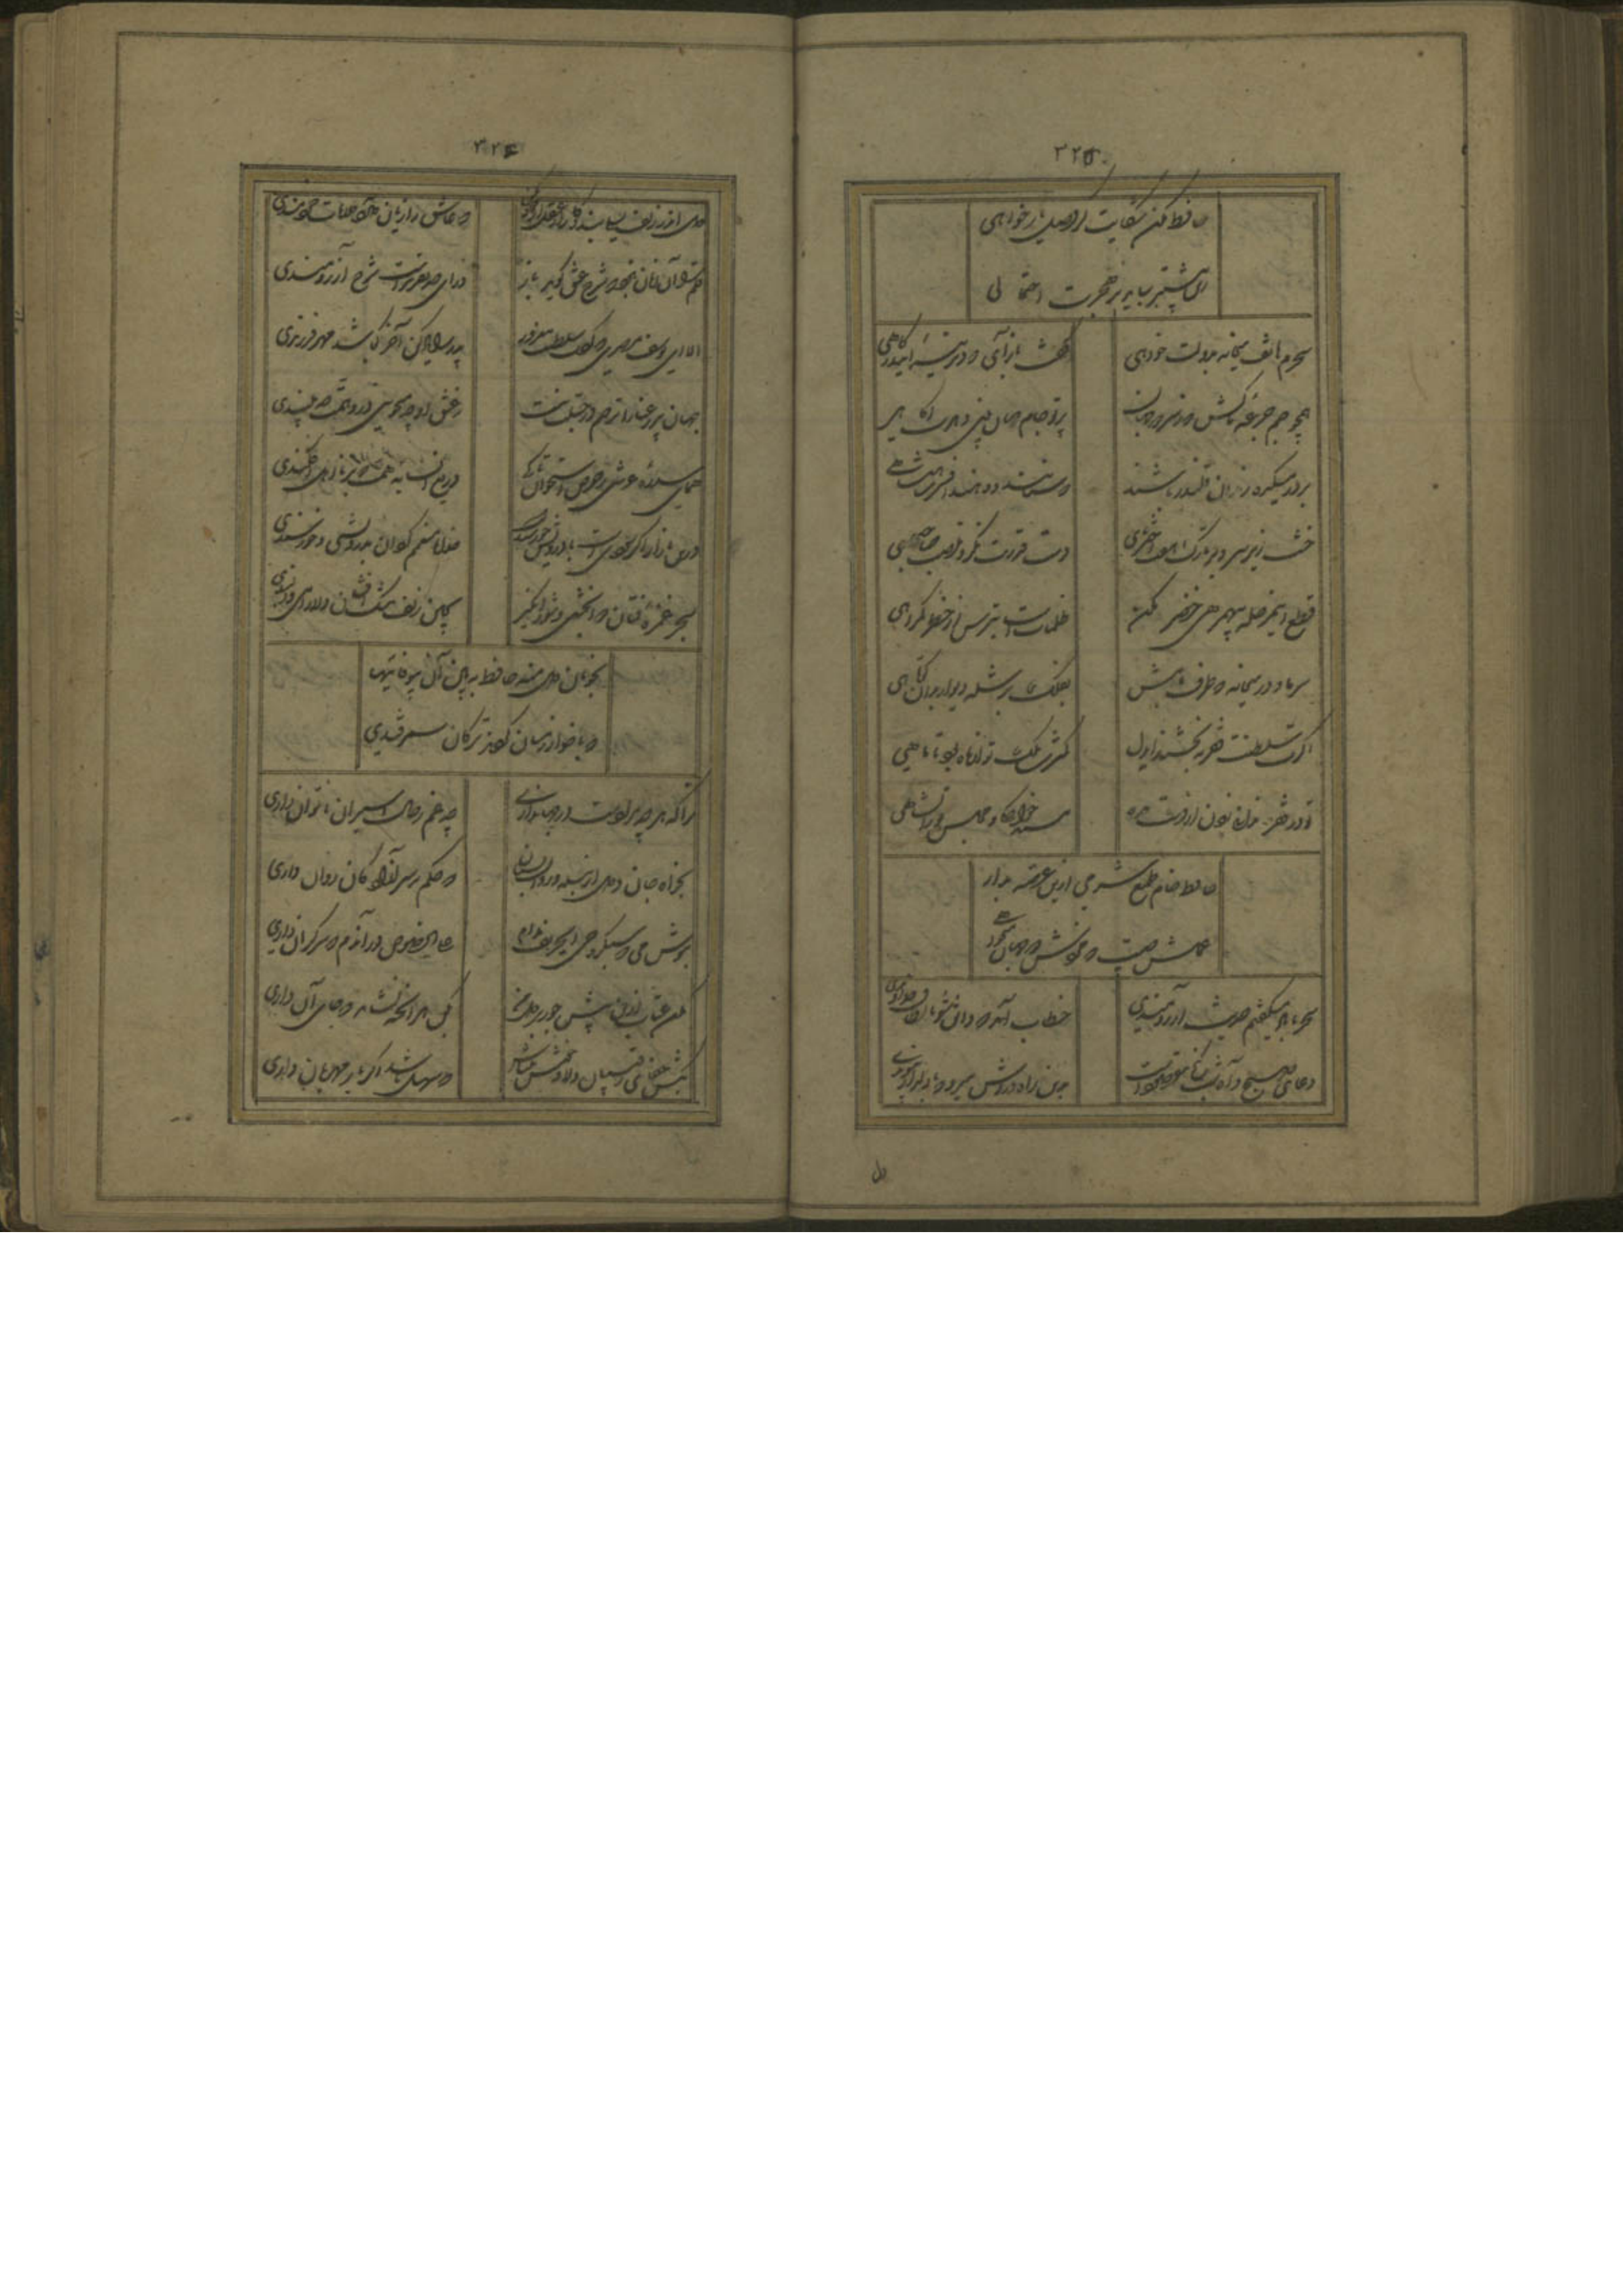 ۳۲۵
حافظ مکن شکایت گر وصل یار خواهی
زین بیشتر بباید بر هجرت احتمالی
سحرم هاتف میخانه بدولت خواهی
گفت بازآی که دیرینهٔ این درگاهی
همچو جم جرعهٔ ما کش که ز سر دو جهان
پرتو جام جهان بین دهدت آگاهی
بر در میکده رندان قلندر باشند
که ستانند و دهند افسر شاهنشاهی
خشت زیر سر و بر تارک هفت اختر پای
دست قدرت نگر و منصب صاحب جاهی
قطع این مرحله بی همرهی خضر مکن
ظلمات است بترس از خطر گمراهی
سر ما و در میخانه که طرف بامش
بفلک بر شده دیوار بدین کوتاهی
اگرت سلطنت فقر ببخشند ای دل
کمترین ملک تو از ماه بود تا ماهی
تو در فقر ندانی زدن از دست مده
مسند خواجگی و مجلس تورانشاهی
حافظ خام طمع شرمی ازین قصه بدار
عملت چیست که مزدش دو جهان میخواهی
سحر با باد میگفتم حدیث آرزومندی
خطاب آمد که واثق شو بالطاف خداوندی
دعای صبح و آه شب کلید گنج مقصودست
بدین راه و روش میرو که با دلدار پیوندی
دل
۳۲۶
دل اندر زلف لیلی بند و کار از عقل مجنون کن
که عاشق را زیان دارد مقالات خردمندی
قلم را آن زبان نبود که سر عشق گوید باز
ورای حد تقریرست شرح آرزومندی
الا ای یوسف مصری که کردت سلطنت مغرور
پدر را بازپرس آخر کجا شد مهر فرزندی
جهان پیر رعنا را ترحم در جبلت نیست
ز عشق او چه میجویی درو همت چه میبندی
همای چون تو عالی قدر حرص استخوان تا کی
دریغ آن سایه همت که بر نااهل افکندی
درین بازار اگر سودیست با درویش خرسندست
خدایا منعمم گردان بدرویشی و خرسندی
بسحر غمزهٔ فتان دوا بخشی و درد انگیز
بچین زلف مشک افشان دلارامی و دلبندی
بخوبان دل مده حافظ ببین آن بیوفائیها
که با خوارزمیان کردند ترکان سمرقندی
ترا که هر چه مرادست در جهان داری
چه غم ز حال اسیران ناتوان داری
بخواه جان و دل از بنده و روان بستان
که حکم بر سر آزادگان روان داری
بنوش می که سبکروحی ای حریف مدام
علی الخصوص در آندم که سر گران داری
مکن عتاب ازین بیش و جور بر دل ما
بکن هر آنچه توانی که جای آن داری
بکش جفای رقیبان مدام و خوش میباش
که سهل باشد اگر یار مهربان داری